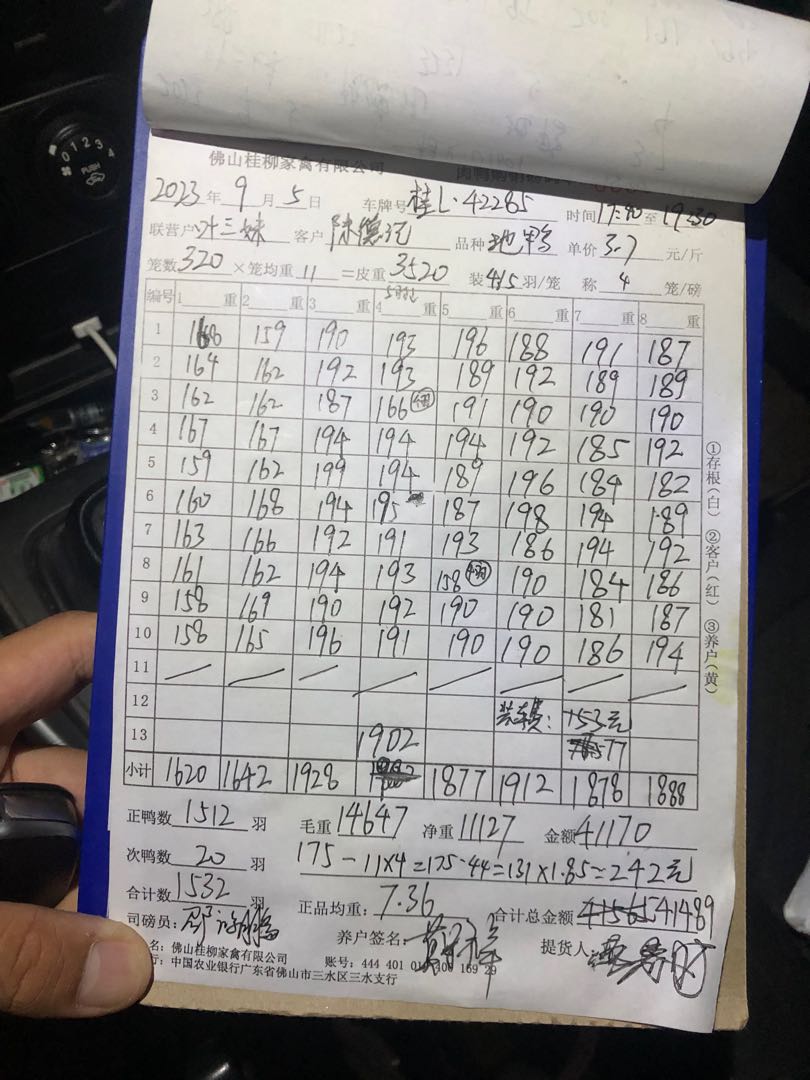 佛山桂柳家禽有限公司
2023年9月5日 车牌号桂L·42285 时间 至
联营户叶三妹 客户陈德记 品种土鸭 单价3.7元/斤
笼数320×笼均重11=皮重3520 装4/5羽/笼 称4笼/磅
编号 1重 2重 3重 4重 5重 6重 7重 8重
1 159 190 193 196 188 191 187
2 164 162 192 193 189 192 189 189
3 162 162 187 166 191 190 190 190
4 167 167 194 194 194 192 185 192
5 159 162 199 194 189 196 184 182
6 160 168 194 195 187 198 194 189
7 163 166 192 191 193 186 194 192
8 161 162 194 193 158 190 184 186
9 158 169 190 192 190 190 181 187
10 158 165 196 191 190 190 186 194
11
12 装车费: 元
13 1902 577
小计 1620 1642 1928 1877 1912 1878 1888
正鸭数1512羽 毛重14647 净重11127 金额41170
次鸭数20羽 175-11×4=175-44=131×1.85=242元
合计数1532羽 正品均重:7.36 合计总金额 41489
司磅员: 养户签名: 提货人
名: 佛山桂柳家禽有限公司 账号: 444 401 01 169 29
行: 中国农业银行广东省佛山市三水区三水支行
①存根(白) ②客户(红) ③养户(黄)